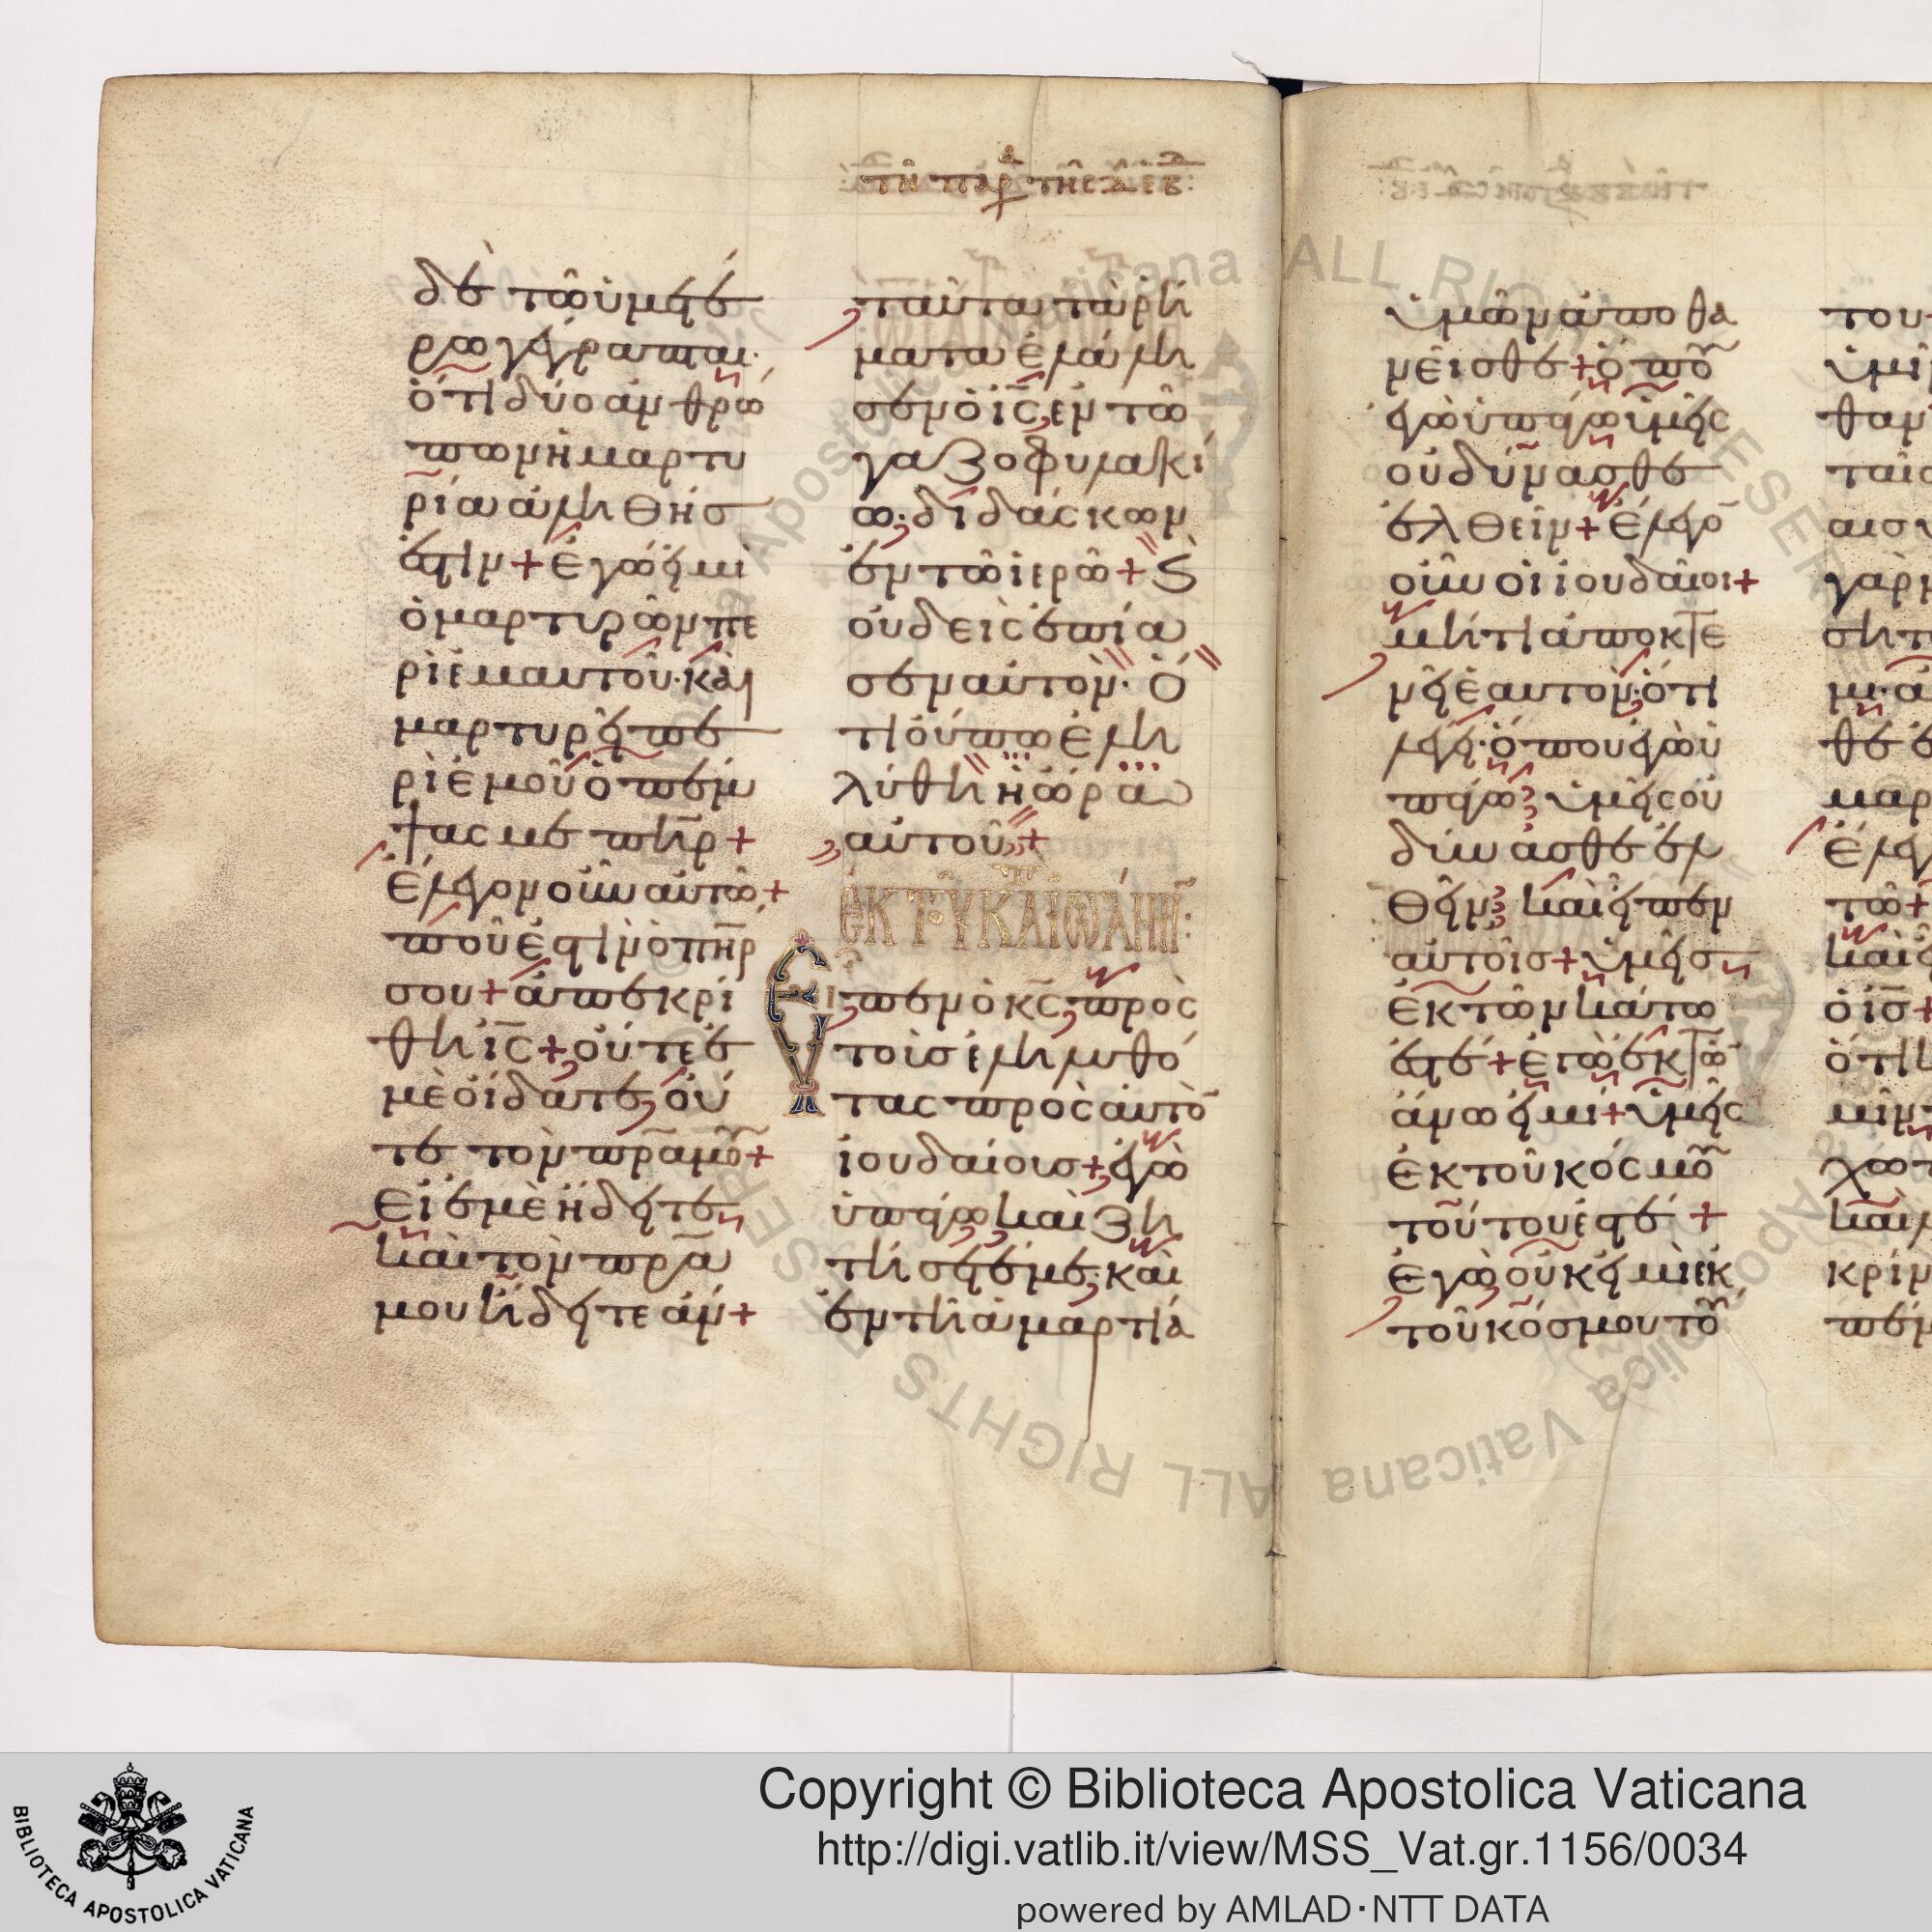 τῆ παρ τῆς δ ἑβ:
δὲ τῶ ὑμετέ
ρω γέγραπται·
ὅτι δύο ἀνθρώ
πων ἡ μαρτυ
ρία ἀληθής
ἐστιν + ἐγώ εἰμι
ὁ μαρτυρῶν πε
ρὶ ἐμαυτοῦ· καὶ
μαρτυρεῖ πε
ρὶ ἐμοῦ ὁ πέμ
ψας με πηρ +
ἔλεγον οὖν αὐτῶ +
ποῦ ἐστὶν ὁ πηρ
σου + ἀπεκρί
θη ις + οὔτε ἐ
μὲ οἴδατε, οὔ
τε τὸν πρα μου +
εἰ ἐμὲ ἤδητε,
καὶ τὸν πρα
μου ἤδητε ἄν +
ταῦτα τὰ ρή
ματα ἐλάλη
σεν ὁ ις, ἐν τῶ
γαζοφυλακί
ω· διδάσκων
ἐν τῶ ἱερῶ + Καὶ
οὐδεὶς ἐπία
σεν αὐτὸν· ὅ
τι οὔπω ἐλη
λύθη ἡ ὥρα
αὐτοῦ +
ἐκ τοῦ κατὰ ἰωάννην:
Εἶπεν ὁ κς, πρὸς
τοὺς ἐληλυθό
τας πρὸς αὐτὸ
ἰουδαίους + ἐγὼ
ὑπάγω, καὶ ζη
τήσετέ με, καὶ
ἐν τῆ ἁμαρτία
ὑμῶν ἀποθα
νεῖσθε + ὅπου
ἐγὼ ὑπάγω ὑμεῖς
οὐ δύνασθε
ἐλθεῖν + ἔλεγο
οὖν οἱ ἰουδαῖοι +
μήτι ἀποκτε
νεῖ ἑαυτόν, ὅτι
λέγει· ὅπου ἐγὼ ὑ
πάγω, ὑμεῖς οὐ
δύνασθε ἐλ
θεῖν, καὶ εἶπεν
αὐτοῖς + ὑμεῖς
ἐκ τῶν κάτω
ἐστέ + ἐγὼ ἐκ τῶ
ἄνω εἰμι + ὑμεῖς
ἐκ τοῦ κόσμου
τούτου ἐστέ +
ἐγὼ οὐκ εἰμὶ ἐκ
τοῦ κόσμου του
του
ὑμῖ
θαν
ται
γὰρ
μαρ
ἔλε
τῶ +
καὶ
ὁ ις +
ὅτι
κρίν
πέμ
Copyright © Biblioteca Apostolica Vaticana
http://digi.vatlib.it/view/MSS_Vat.gr.1156/0034
powered by AMLAD·NTT DATA
BIBLIOTECA APOSTOLICA VATICANA